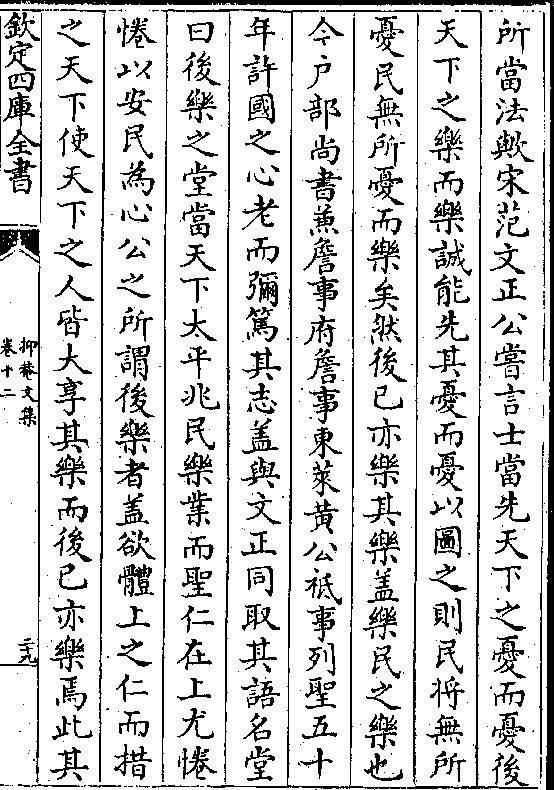 所當法歟宋范文正公嘗言士當先天下之憂而憂後
天下之樂而樂誠能先其憂而憂以圖之則民将無所
憂民無所憂而樂矣然後已亦樂其樂盖樂民之樂也
今户部尚書兼詹事府詹事東萊黄公祗事列聖五十
年許國之心老而彌篤其志盖與文正同取其語名堂
曰後樂之堂當天下太平兆民樂業而聖仁在上尤惓
惓以安民為心公之所謂後樂者盖欲體上之仁而措
之天下使天下之人皆大享其樂而後已亦樂焉此其
欽定四庫全書
抑菴文集
卷十二
二十九